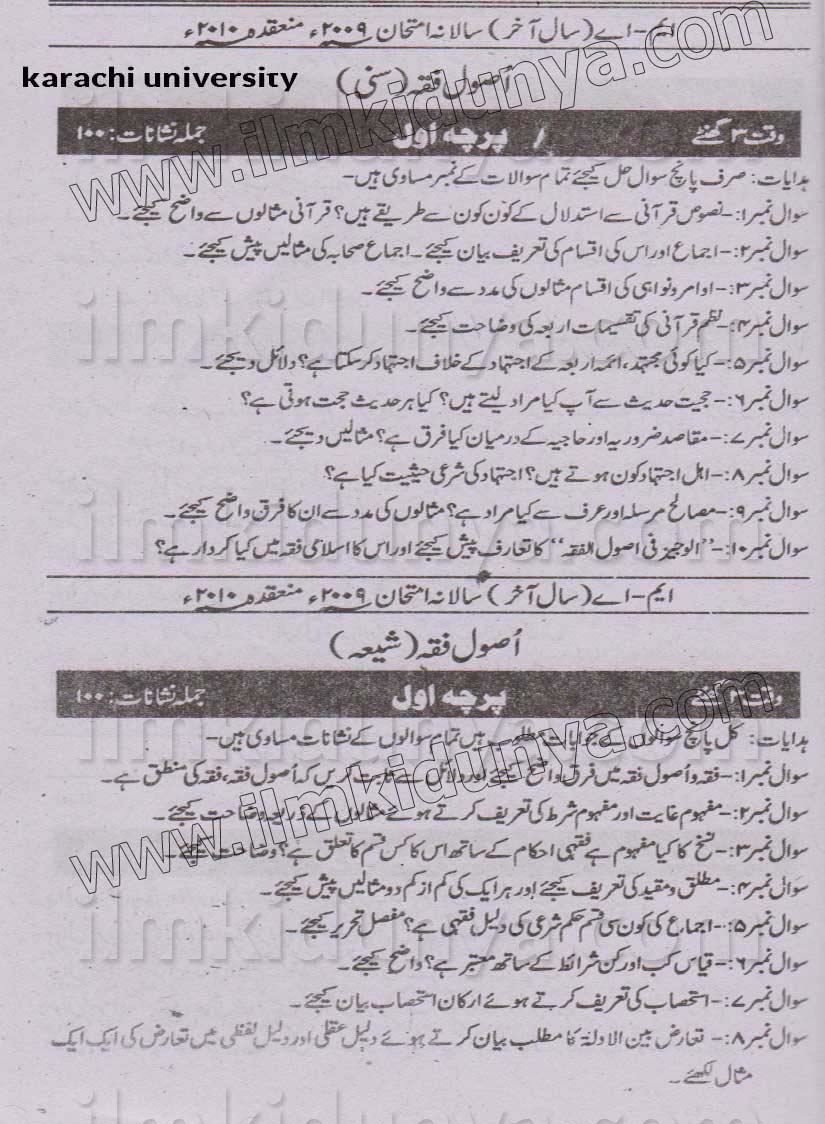 ایم-اے (سال آخر) سالانہ امتحان ۲۰۰۹ء منعقدہ ۲۰۱۰ء
karachi university
اُصول فقہ (سنی)
وقت ۳ گھنٹے پرچہ اول جملہ نشانات: ۱۰۰
ہدایات: صرف پانچ سوال حل کیجئے تمام سوالات کے نمبر مساوی ہیں-
سوال نمبر۱:- نصوص قرآنی سے استدلال کے کون کون سے طریقے ہیں؟ قرآنی مثالوں سے واضح کیجئے۔
سوال نمبر۲:- اجماع اور اس کی اقسام کی تعریف بیان کیجئے۔ اجماع صحابہ کی مثالیں پیش کیجئے۔
سوال نمبر۳:- اوامر و نواہی کی اقسام مثالوں کی مدد سے واضح کیجئے۔
سوال نمبر۴:- نظم قرآنی کی تقسیمات اربعہ کی وضاحت کیجئے۔
سوال نمبر۵:- کیا کوئی مجتہد، ائمہ اربعہ کے اجتہاد کے خلاف اجتہاد کر سکتا ہے؟ دلائل دیجئے۔
سوال نمبر۶:- حجیت حدیث سے آپ کیا مراد لیتے ہیں؟ کیا ہر حدیث حجت ہوتی ہے؟
سوال نمبر۷:- مقاصد ضروریہ اور حاجیہ کے درمیان کیا فرق ہے؟ مثالیں دیجئے۔
سوال نمبر۸:- اہل اجتہاد کون ہوتے ہیں؟ اجتہاد کی شرعی حیثیت کیا ہے؟
سوال نمبر۹:- مصالح مرسلہ اور عرف سے کیا مراد ہے؟ مثالوں کی مدد سے ان کا فرق واضح کیجئے۔
سوال نمبر۱۰:- "الوجیز فی اصول الفقہ" کا تعارف پیش کیجئے اور اس کا اسلامی فقہ میں کیا کردار ہے؟
ایم-اے (سال آخر) سالانہ امتحان ۲۰۰۹ء منعقدہ ۲۰۱۰ء
اُصول فقہ (شیعہ)
وقت ۳ گھنٹے پرچہ اول جملہ نشانات: ۱۰۰
ہدایات: کل پانچ سوالوں کے جوابات ہیں تمام سوالوں کے نشانات مساوی ہیں-
سوال نمبر۱:- فقہ و اُصول فقہ میں فرق واضح کیجئے اور دلائل سے ثابت کریں کہ اُصول فقہ، فقہ کی منطق ہے۔
سوال نمبر۲:- مفہوم غایت اور مفہوم شرط کی تعریف کرتے ہوئے مثالوں کے ذریعہ وضاحت کیجئے۔
سوال نمبر۳:- نسخ کا کیا مفہوم ہے فقہی احکام کے ساتھ اس کا کس قسم کا تعلق ہے؟ وضاحت کیجئے۔
سوال نمبر۴:- مطلق و مقید کی تعریف کیجئے اور ہر ایک کی کم از کم دو مثالیں پیش کیجئے۔
سوال نمبر۵:- اجماع کی کون سی قسم حکم شرعی کی دلیل فقہی ہے؟ مفصل تحریر کیجئے۔
سوال نمبر۶:- قیاس کب اور کن شرائط کے ساتھ معتبر ہے؟ واضح کیجئے۔
سوال نمبر۷:- استحصاب کی تعریف کرتے ہوئے ارکان استحصاب بیان کیجئے۔
سوال نمبر۸:- تعارض بین الادلۃ کا مطلب بیان کرتے ہوئے دلیل عقلی اور دلیل لفظی میں تعارض کی ایک ایک
مثال لکھئے۔
www.ilmkidunya.com
www.ilmkidunya.com
ilmkidunya.com
ilmkidunya.com
ilmkidunya.com
ilmkidunya.com
ilmkidunya.com
ilmkidunya.com